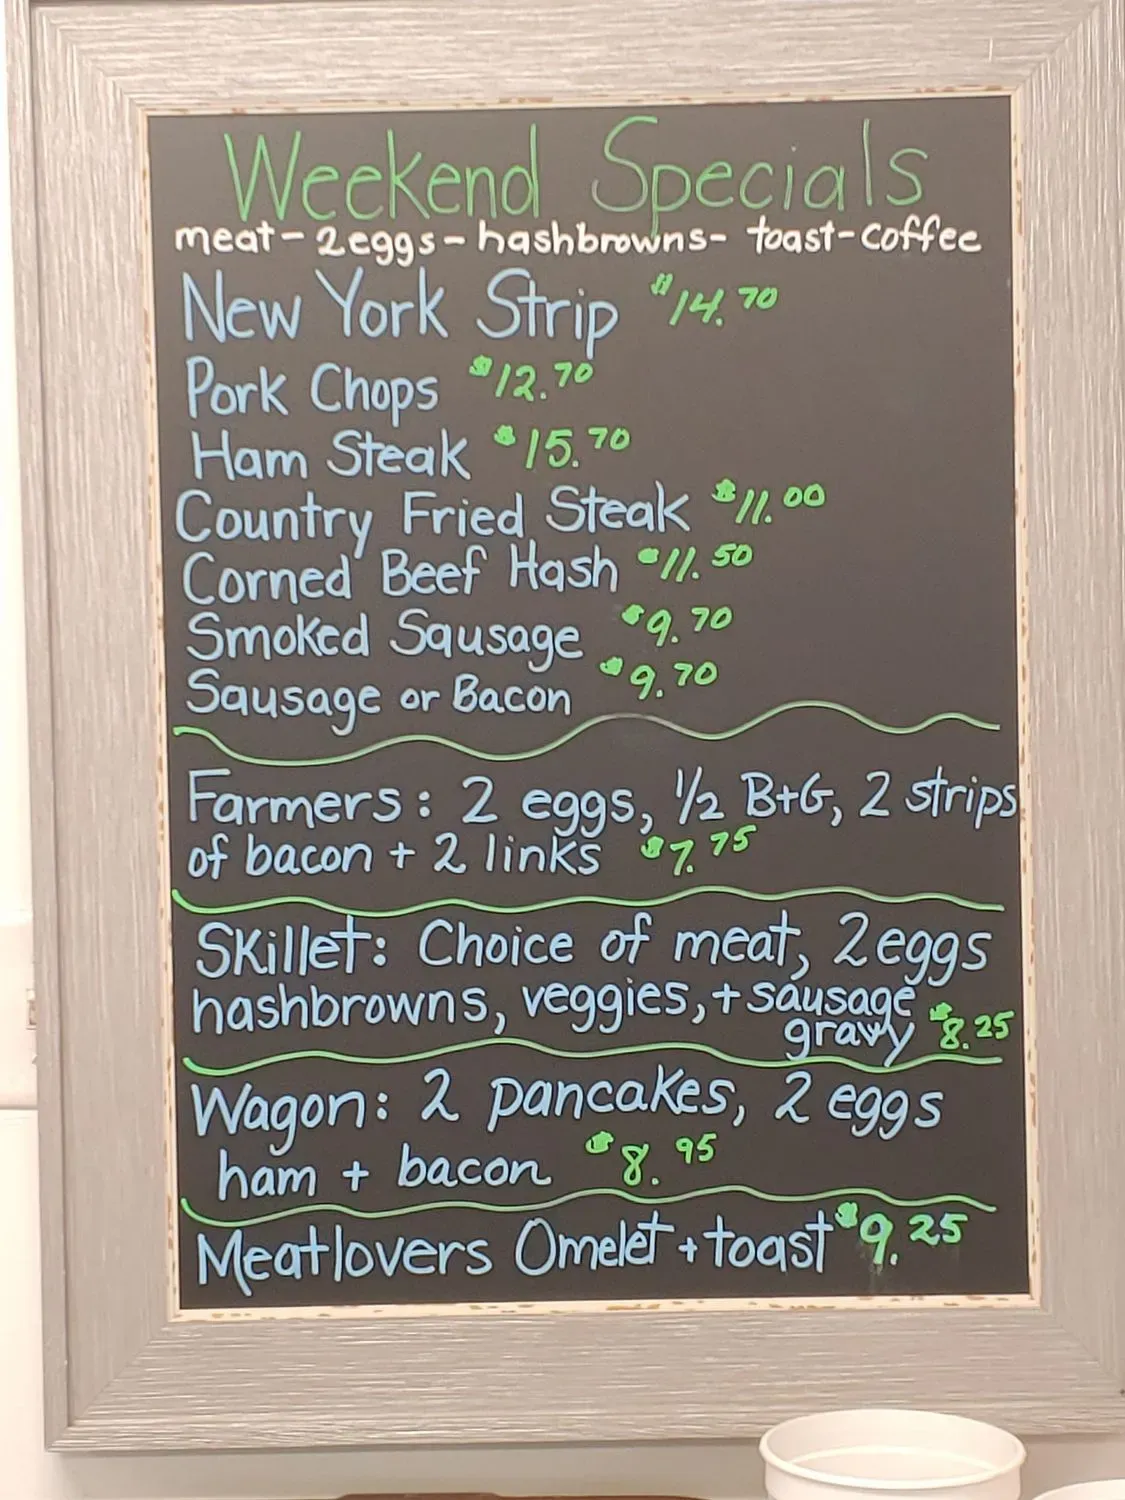 Weekend Specials
meat - 2 eggs - hashbrowns - toast - coffee
New York Strip $14.70
Pork Chops $12.70
Ham Steak $15.70
Country Fried Steak $11.00
Corned Beef Hash $11.50
Smoked Sausage $9.70
Sausage or Bacon $9.70
Farmers: 2 eggs, 1/2 B+G, 2 strips
of bacon + 2 links $7.75
Skillet: Choice of meat, 2 eggs
hashbrowns, veggies, + sausage
gravy $8.25
Wagon: 2 pancakes, 2 eggs
ham + bacon $8.95
Meatlovers Omelet + toast $9.25